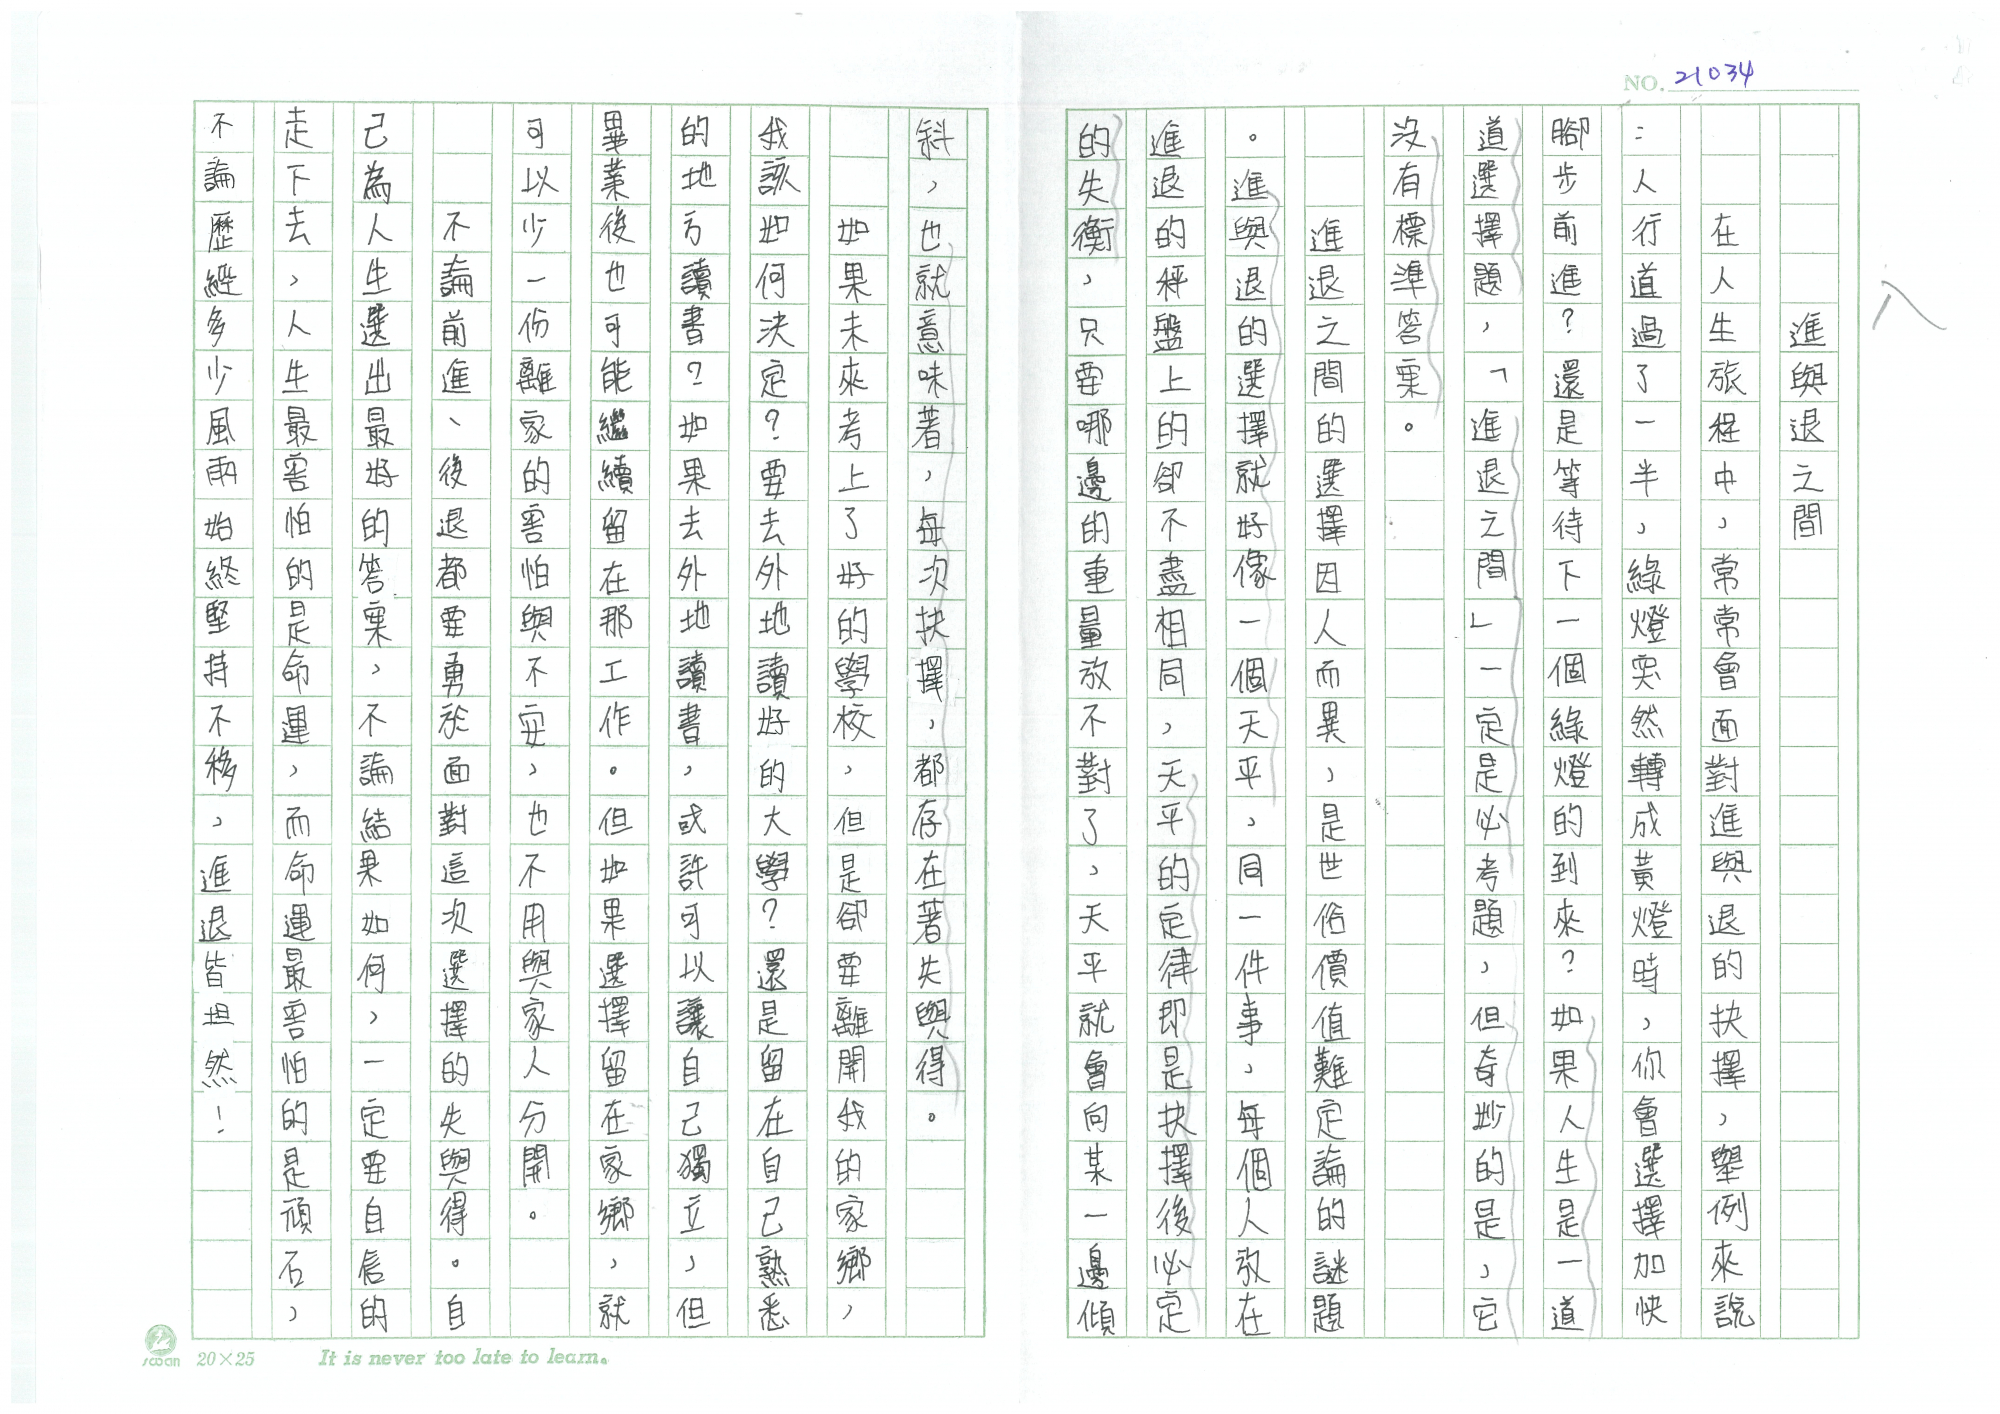 NO. 21034
八
進與退之間
在人生旅程中,常常會面對進與退的抉擇,舉例來說
:人行道過了一半,綠燈突然轉成黃燈時,你會選擇加快
腳步前進?還是等待下一個綠燈的到來?如果人生是一道
道選擇題,「進退之間」一定是必考題,但奇妙的是,它
沒有標準答案。
進退之間的選擇因人而異,是世俗價值難定論的謎題
。進與退的選擇就好像一個天平,同一件事,每個人放在
進退的秤盤上的卻不盡相同,天平的定律即是抉擇後必定
的失衡,只要哪邊的重量放不對了,天平就會向某一邊傾
斜,也就意味著,每次抉擇,都存在著失與得。
如果未來考上了好的學校,但是卻要離開我的家鄉,
我該如何決定?要去外地讀好的大學?還是留在自己熟悉
的地方讀書?如果去外地讀書,或許可以讓自己獨立,但
畢業後也可能繼續留在那工作。但如果選擇留在家鄉,就
可以少一份離家的害怕與不安,也不用與家人分開。
不論前進、後退都要勇於面對這次選擇的失與得。自
己為人生選出最好的答案,不論結果如何,一定要自信的
走下去,人生最害怕的是命運,而命運最害怕的是頑石,
不論歷經多少風雨始終堅持不移,進退皆坦然!
scoan 20×25 It is never too late to learn.